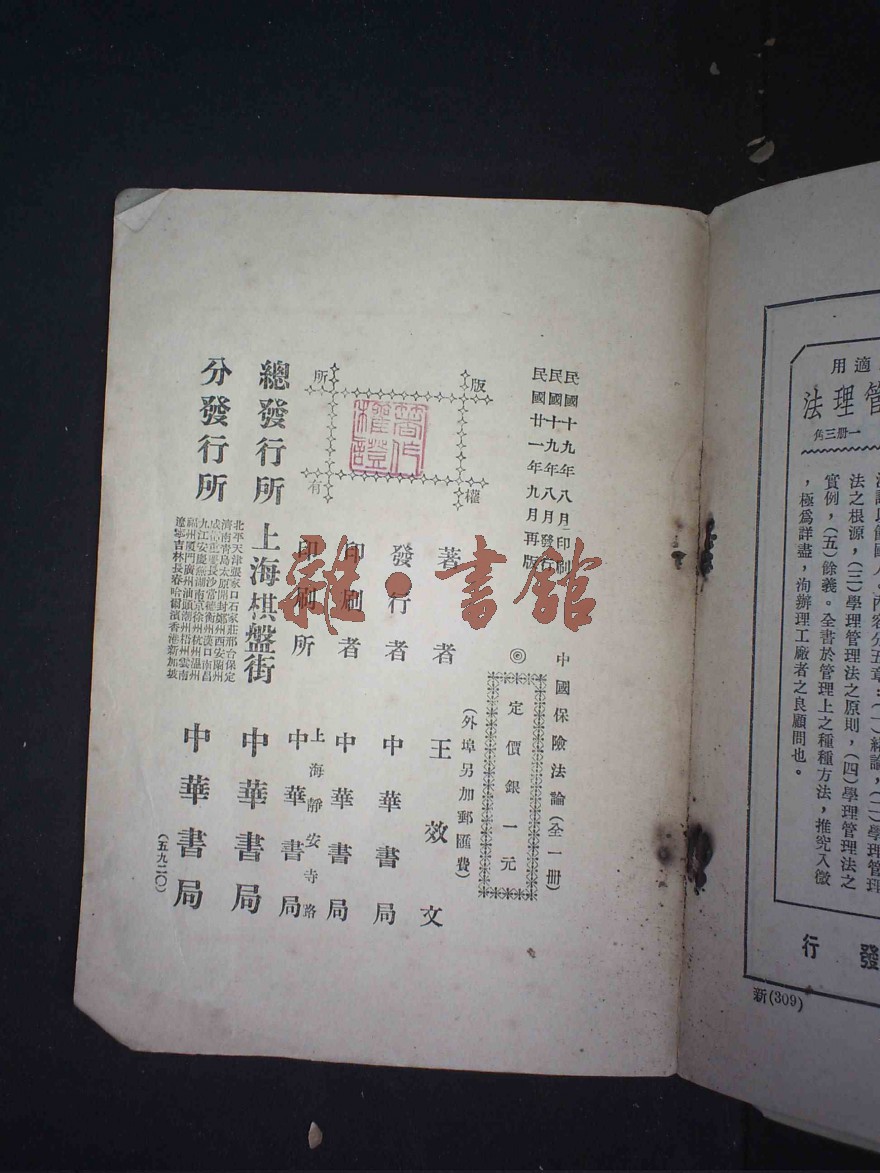 民國十九年八月印刷
民國十九年八月發行
民國廿一年九月再版
中國保險法論(全一册)
◎定價銀一元
(外埠另加郵匯費)
版權所有
著作權證
著者 王效文
發行者 中華書局
印刷者 中華書局
印刷所 上海靜安寺路 中華書局
總發行所 上海棋盤街 中華書局
分發行所 中華書局
北平天津張家口石家莊邢台保定
濟南青島太原開封鄭州西安蘭州
成都重慶長沙常德衡州漢口南昌
九江安慶蕪湖南京徐州杭州溫州
福州廈門廣州汕頭潮州梧州雲南
遼寧吉林長春哈爾濱香港新加坡
(五九二〇)
雜·書館
適用
管理法
一册三角
法之根源,(三)學理管理法之原則,(四)學理管理法之
實例,(五)餘義。全書於管理上之種種方法,推究入微
,極爲詳盡,洵辦理工廠者之良顧問也。
發行
新(309)